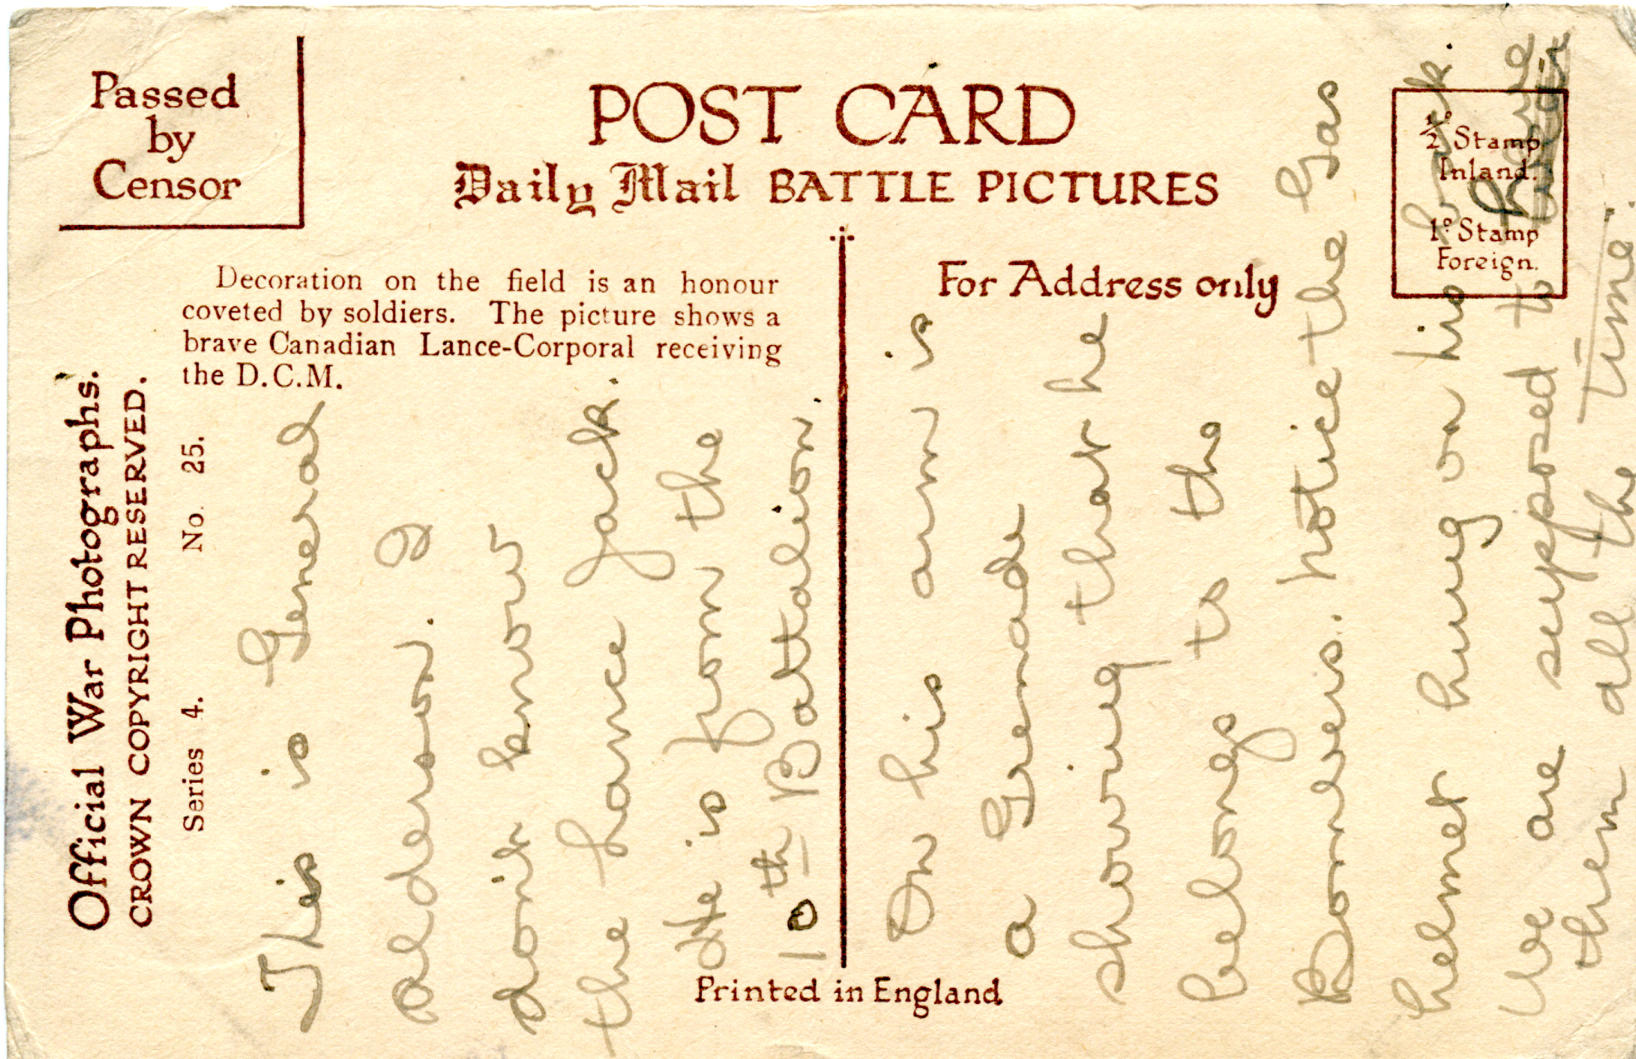 Passed
by
Censor
POST CARD
Daily Mail BATTLE PICTURES
Decoration on the field is an honour
coveted by soldiers. The picture shows a
brave Canadian Lance-Corporal receiving
the D.C.M.
For Address only
½ᴰ Stamp
Inland.
1ᴰ Stamp
Foreign.
Official War Photographs.
CROWN COPYRIGHT RESERVED.
Series 4. No. 25.
This is General
Alderson. I
don't know
the Lance Jack.
He is from the
10th Battalion.
On his arm is
a Grenade
showing that he
belongs to the
Bombers. Notice the Gas
helmet hung on his back.
We are supposed to have
them all the time.
Printed in England